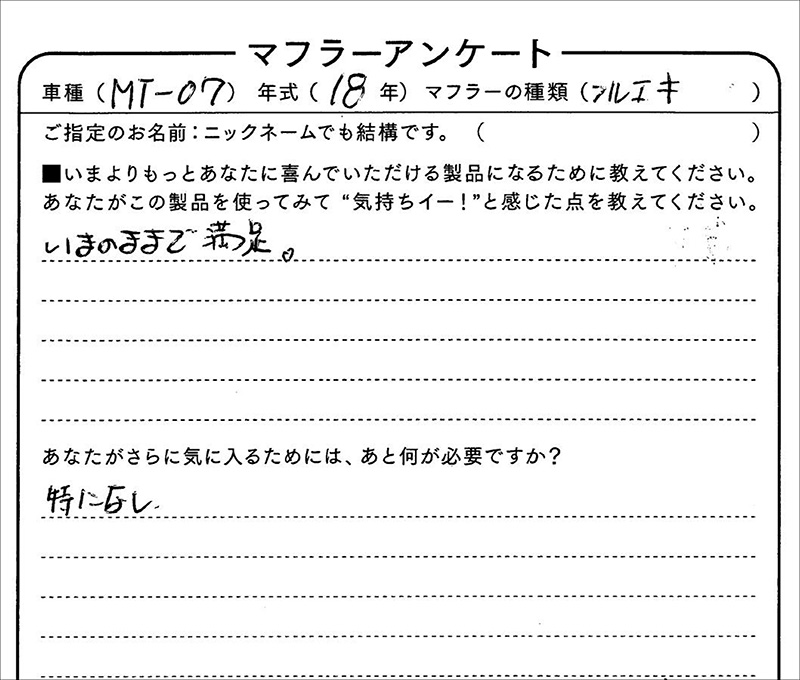 マフラーアンケート
車種(MT-07) 年式(18年) マフラーの種類(フルエキ)
ご指定のお名前:ニックネームでも結構です。( )
■いまよりもっとあなたに喜んでいただける製品になるために教えてください。
あなたがこの製品を使ってみて“気持ちイー!”と感じた点を教えてください。
いまのままで満足。
あなたがさらに気に入るためには、あと何が必要ですか?
特になし.